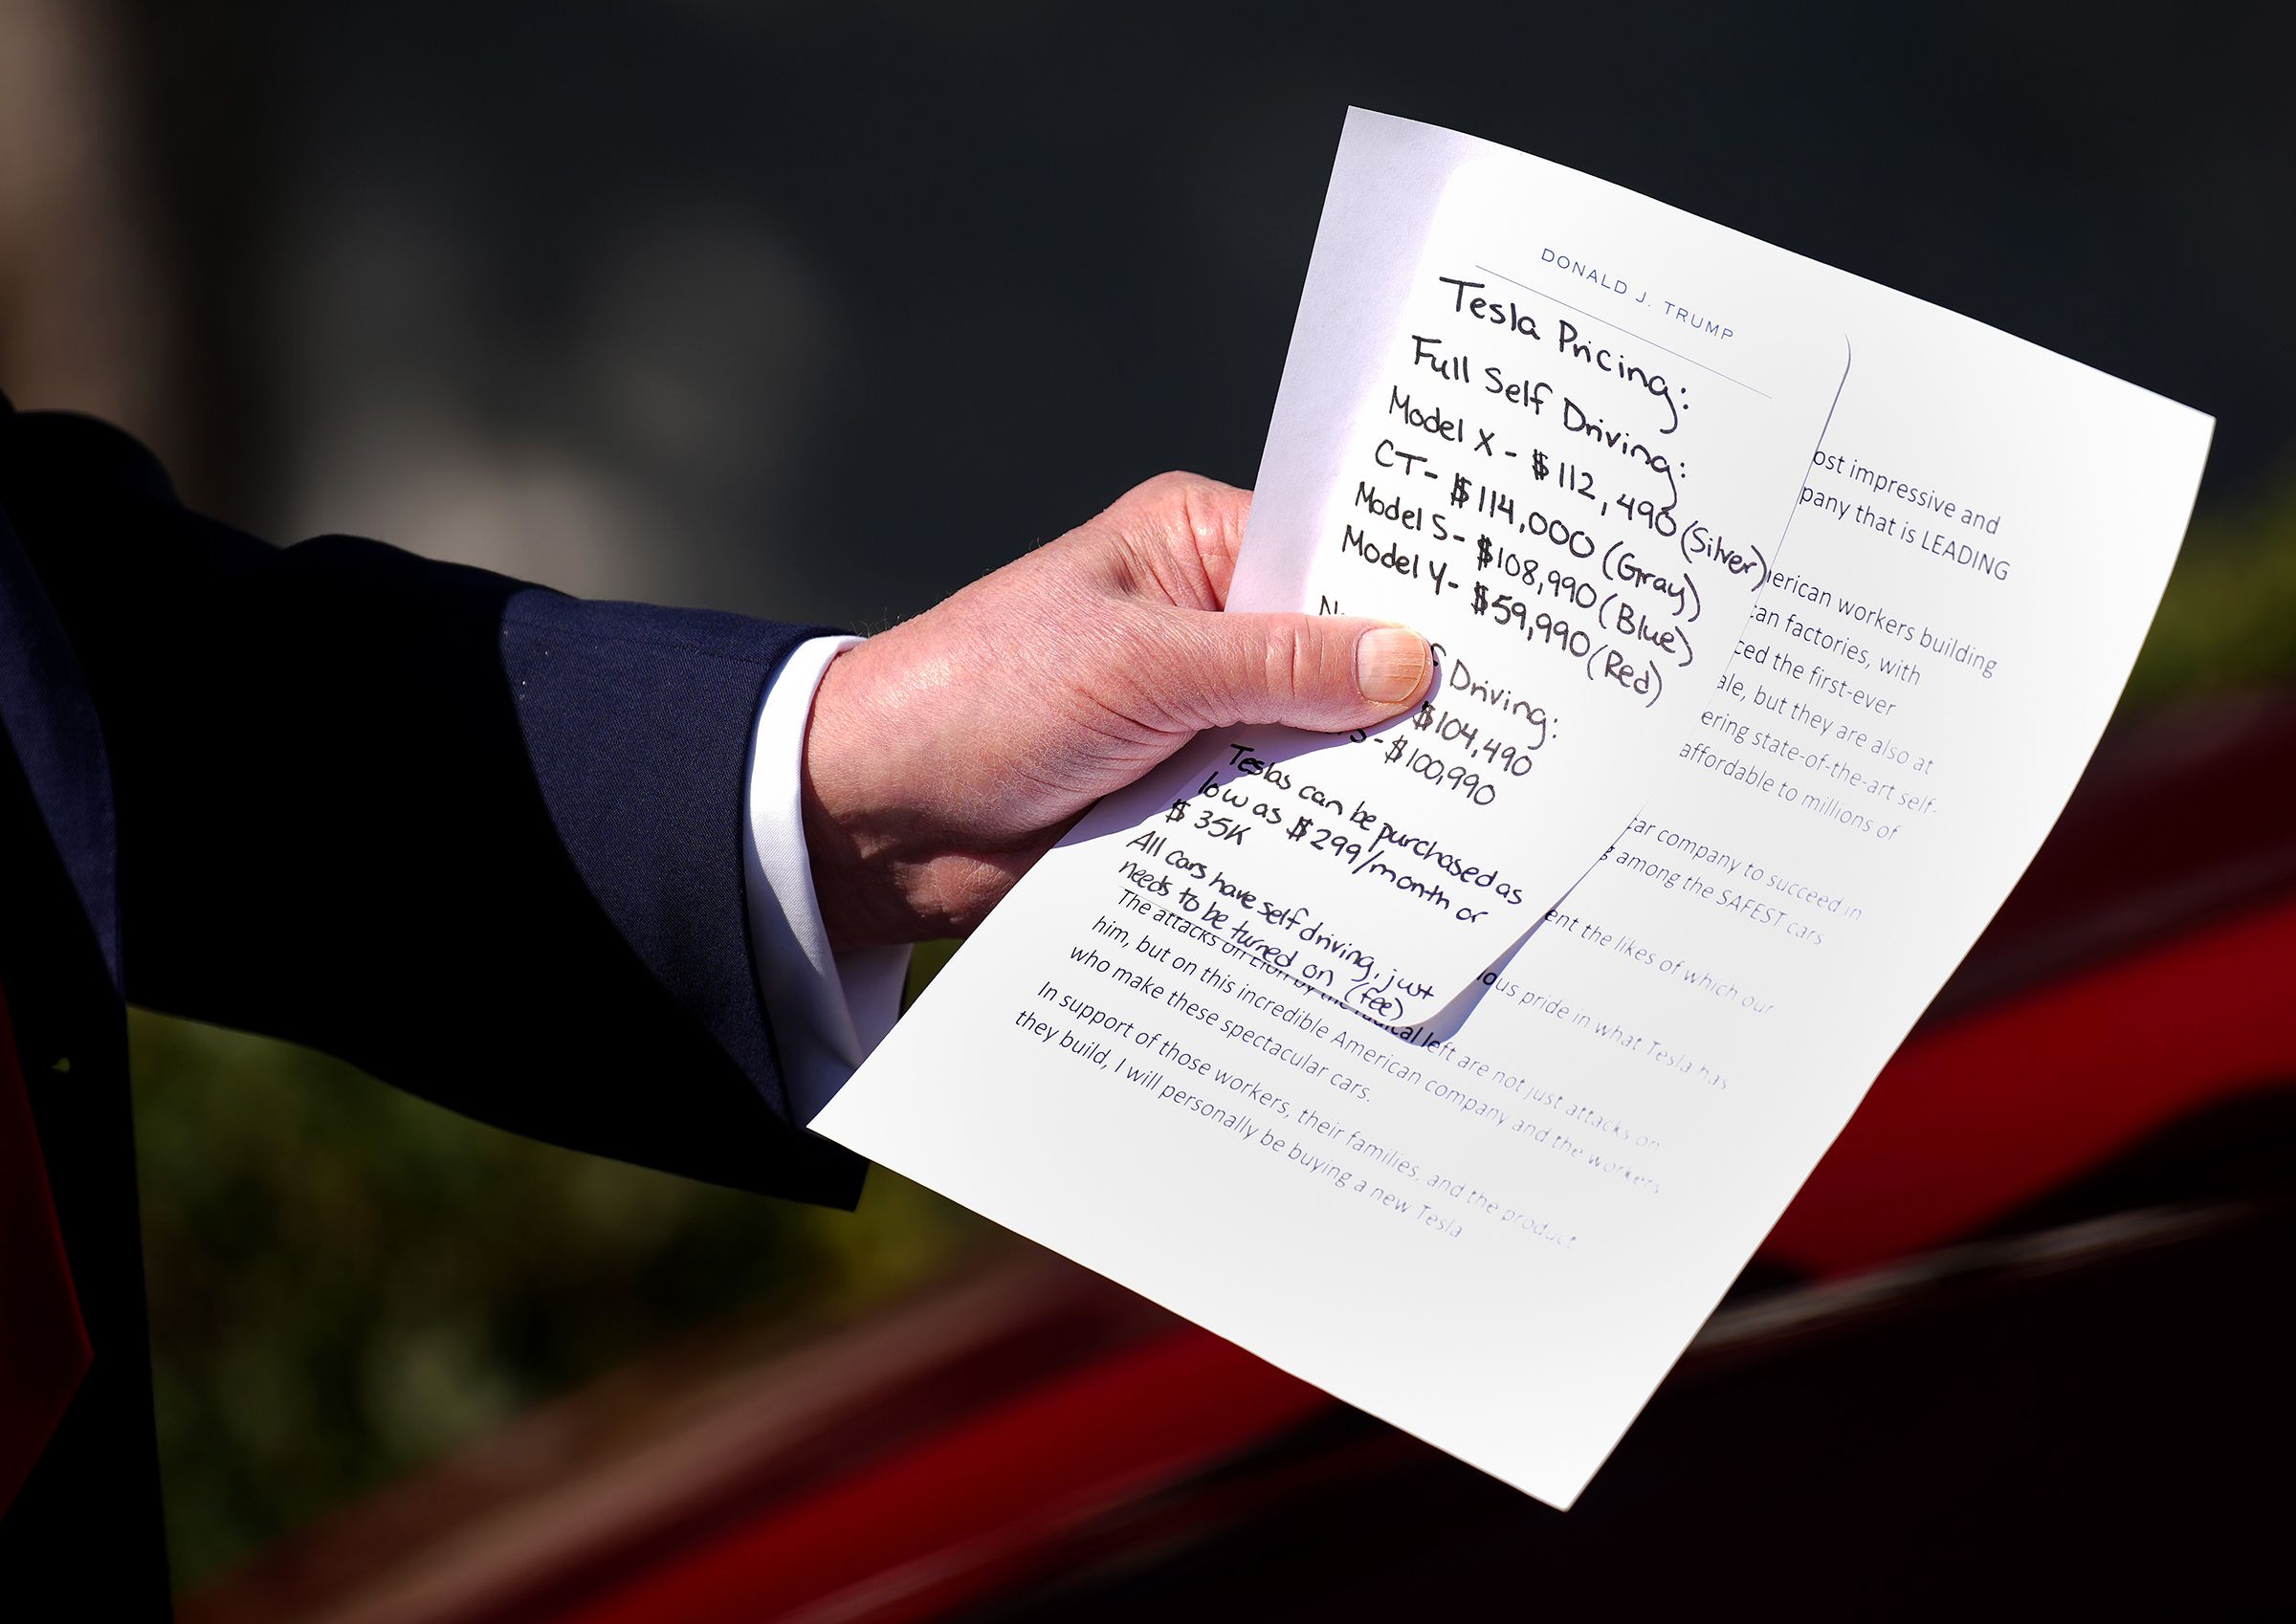 DONALD J. TRUMP
Tesla Pricing:
Full Self Driving:
Model X - $112,490 (Silver)
CT - $114,000 (Gray)
Model S - $108,990 (Blue)
Model Y - $59,990 (Red)
Driving:
$104,490
S - $100,990
Teslas can be purchased as
low as $299/month or
$35K
All cars have self driving, just
needs to be turned on (fee)
ost impressive and
pany that is LEADING
erican workers building
can factories, with
ced the first-ever
ale, but they are also at
ering state-of-the-art self-
affordable to millions of
car company to succeed in
among the SAFEST cars
ent the likes of which our
ous pride in what Tesla has
The attacks on Elon by the radical left are not just attacks on
him, but on this incredible American company and the workers
who make these spectacular cars.
In support of those workers, their families, and the product
they build, I will personally be buying a new Tesla